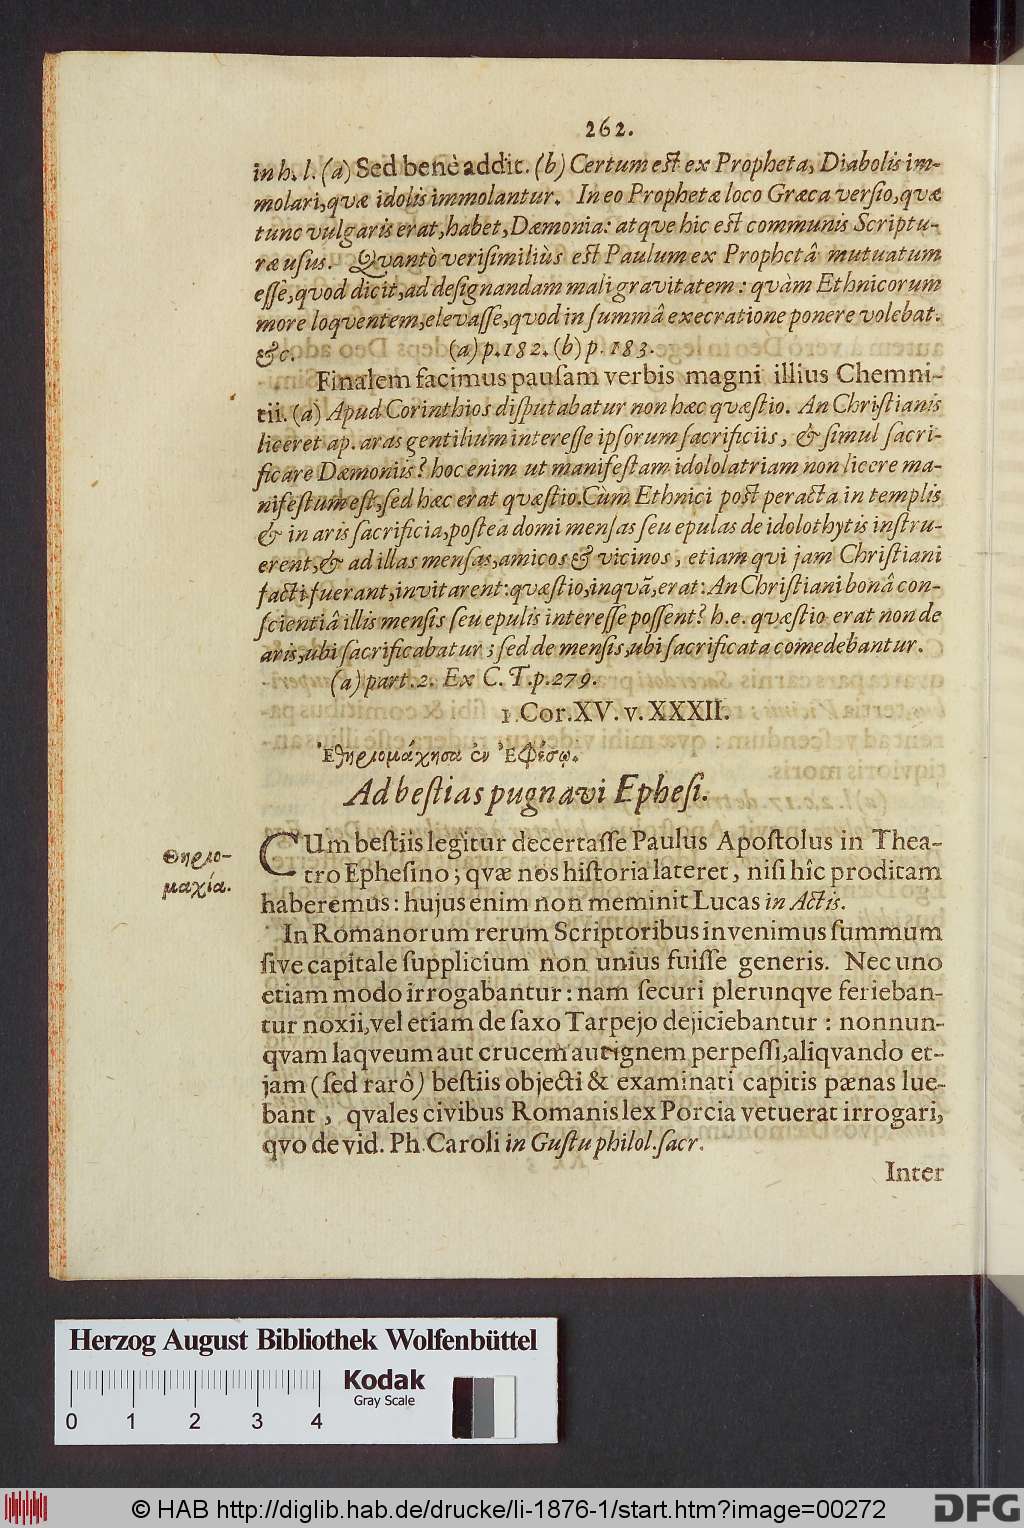 262.
in h. l. (a) Sed benè addit. (b) Certum est ex Propheta, Diabolis im-
molari, qvæ idolis immolantur. In eo Prophetæ loco Græca versio, qvæ
tunc vulgaris erat, habet, Dæmonia: atqve hic est communis Scriptu-
ræ usus. Qvantò verisimiliùs est Paulum ex Prophetâ mutuatum
esse, qvod dicit, ad designandam mali gravitatem: qvàm Ethnicorum
more loqventem, elevasse, qvod in summâ execratione ponere volebat.
&c. (a) p. 182. (b) p. 183.
Finalem facimus pausam verbis magni illius Chemni-
tii. (a) Apud Corinthios disputabatur non hæc qvæstio. An Christianis
liceret ap. aras gentilium interesse ipsorum sacrificiis, & simul sacri-
ficare Dæmoniis? hoc enim ut manifestam idololatriam non licere ma-
nifestum est, sed hæc erat qvæstio. Cùm Ethnici post peracta in templis
& in aris sacrificia, postea domi mensas seu epulas de idolothytis instru-
erent, & ad illas mensas, amicos & vicinos, etiam qui jam Christiani
facti fuerant, invitarent: qvæstio, inqvã, erat: An Christiani bonâ con-
scientiâ illis mensis seu epulis interesse possent? h. e. qvæstio erat non de
aris, ubi sacrificabatur; sed de mensis, ubi sacrificata comedebantur.
(a) part. 2. Ex C. T. p. 279.
1. Cor. XV. v. XXXII.
Ἐθηριομάχησα ἐν Ἐφέσῳ.
Ad bestias pugnavi Ephesi.
Θηριο-
μαχία.
CUm bestiis legitur decertasse Paulus Apostolus in Thea-
tro Ephesino; qvæ nos historia lateret, nisi hîc proditam
haberemus: hujus enim non meminit Lucas in Actis.
In Romanorum rerum Scriptoribus invenimus summum
sive capitale supplicium non unius fuisse generis. Nec uno
etiam modo irrogabantur: nam securi plerunqve ferieban-
tur noxii, vel etiam de saxo Tarpejo dejiciebantur: nonnun-
qvam laqveum aut crucem aut ignem perpessi, aliqvando et-
jam (sed rarô) bestiis objecti & examinati capitis pænas lue-
bant, qvales civibus Romanis lex Porcia vetuerat irrogari,
qvo de vid. Ph. Caroli in Gustu philol. sacr.
Inter
Herzog August Bibliothek Wolfenbüttel
Kodak
Gray Scale
0 1 2 3 4
© HAB http://diglib.hab.de/drucke/li-1876-1/start.htm?image=00272
DFG